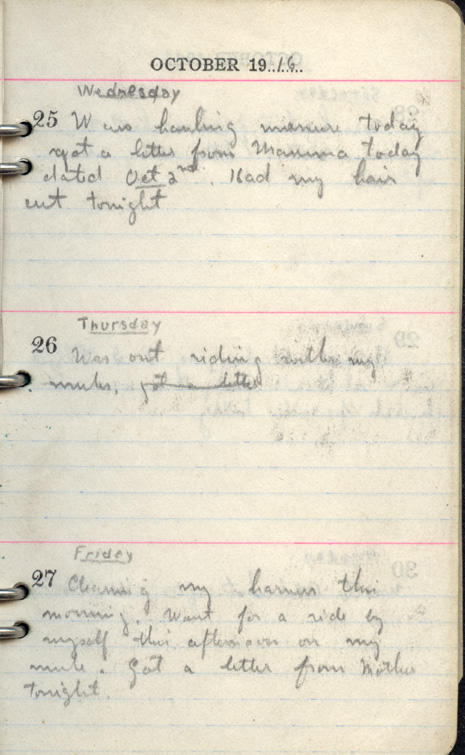 OCTOBER 1916
Wednesday
25 Was hauling manure today
got a letter from Mamma today
dated Oct 2nd. Had my hair
cut tonight
Thursday
26 Was out riding with my
mules. got a letter
Friday
27 Cleaning my harness this
morning. Want for a ride by
myself this afternoon on my
mule. Got a letter from Mother
tonight.